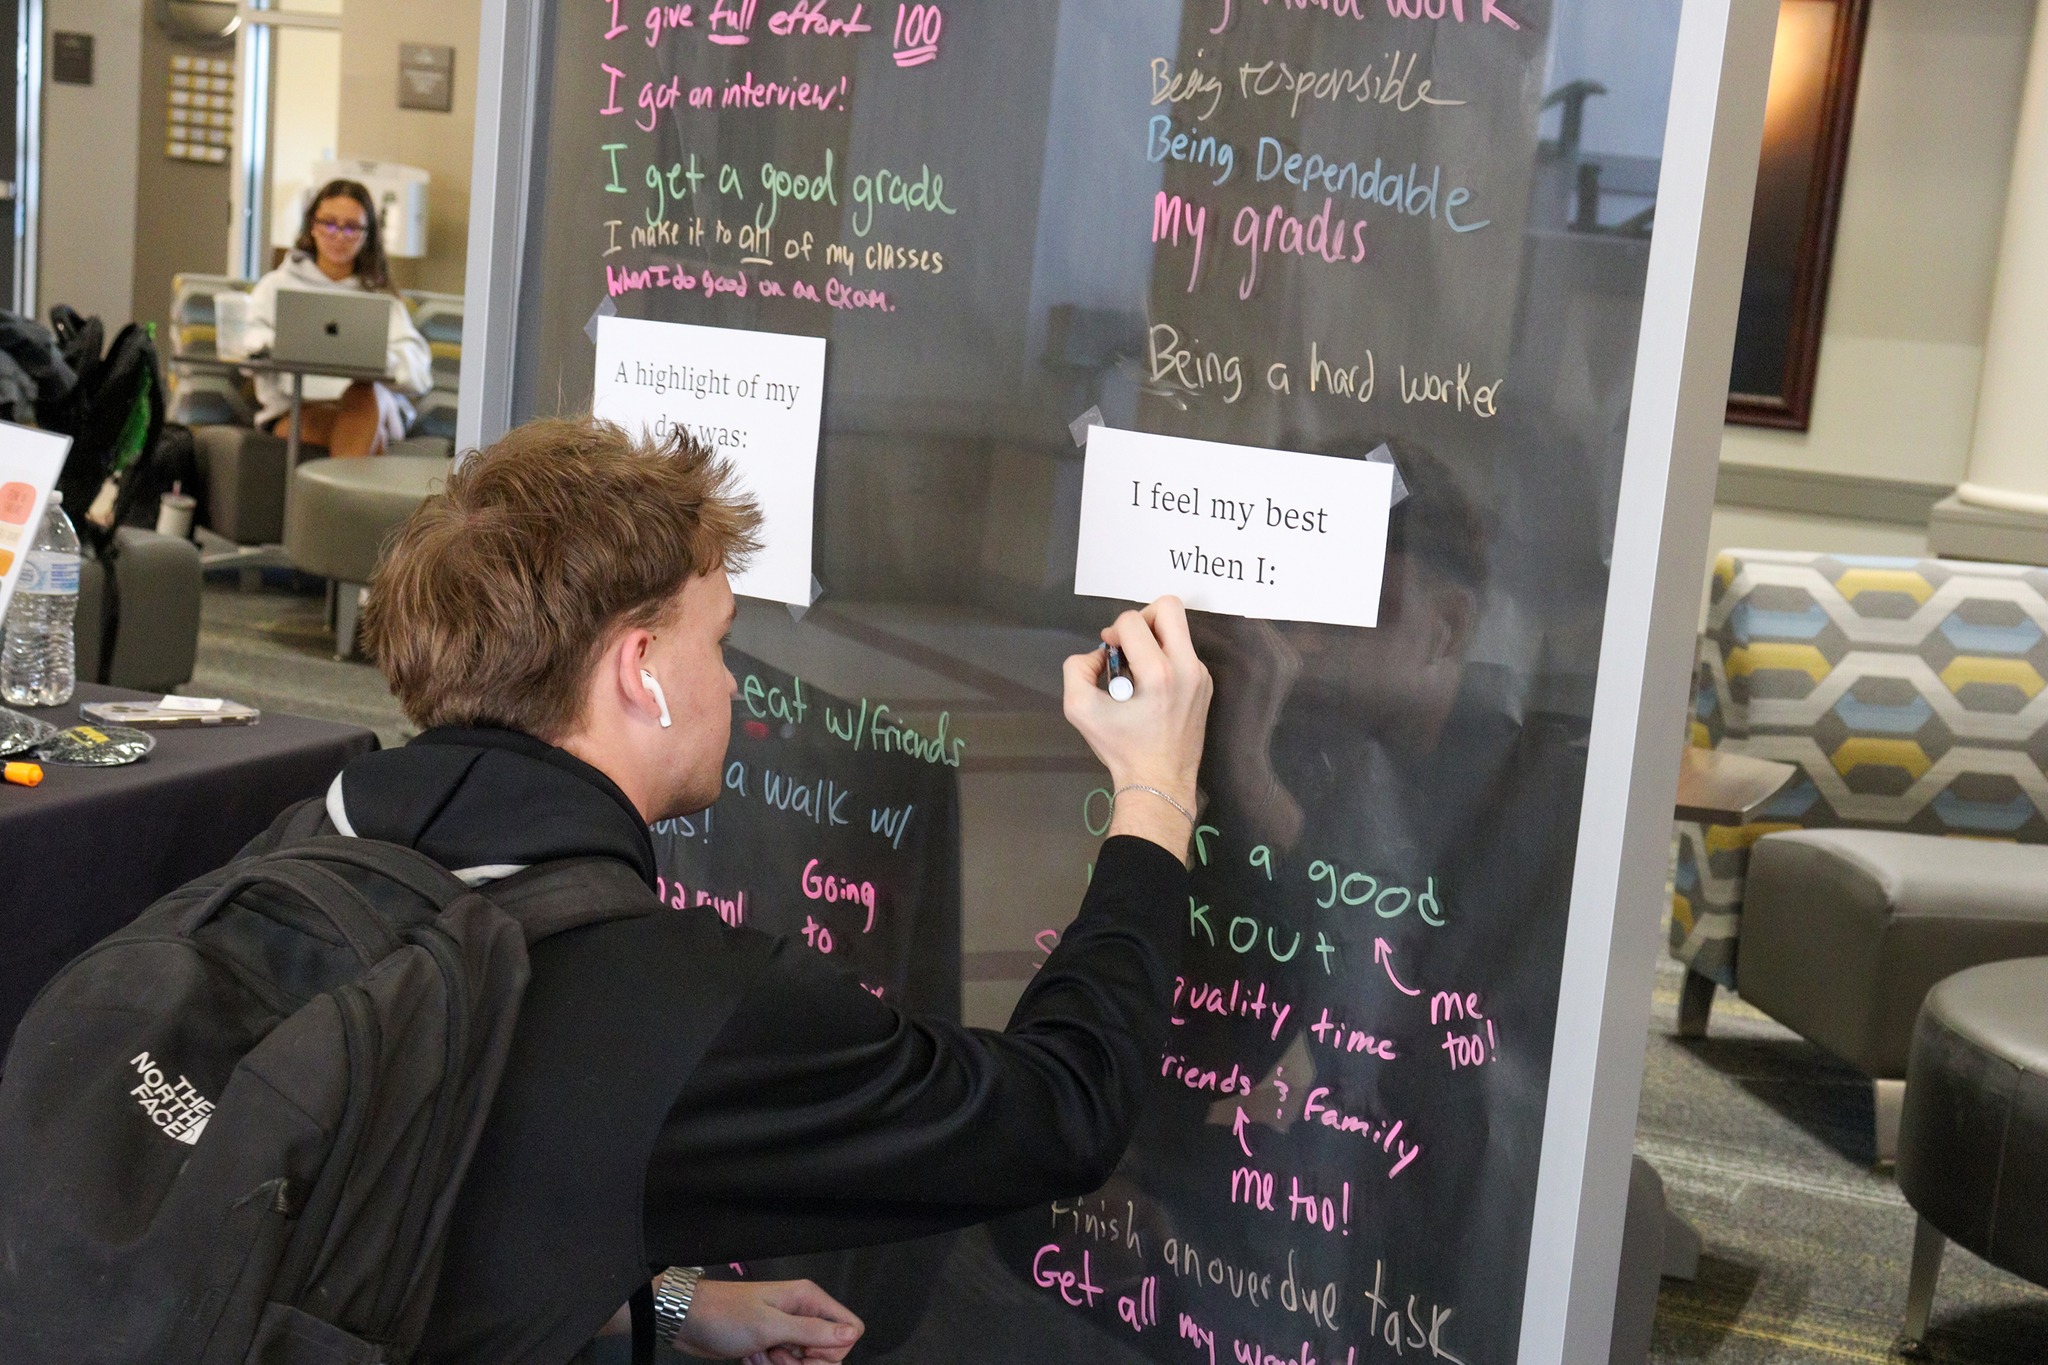 I give full effort 100
I got an interview!
I get a good grade
I make it to all of my classes
When I do good on an exam.
A highlight of my
day was:
eat w/friends
a walk w/
a run!
Going
to
hard work
Being responsible
Being Dependable
my grades
Being a hard worker
I feel my best
when I:
r a good
kout
me
too!
Quality time
riends & family
me too!
Finish an overdue task
Get all my
THE
NORTH
FACE